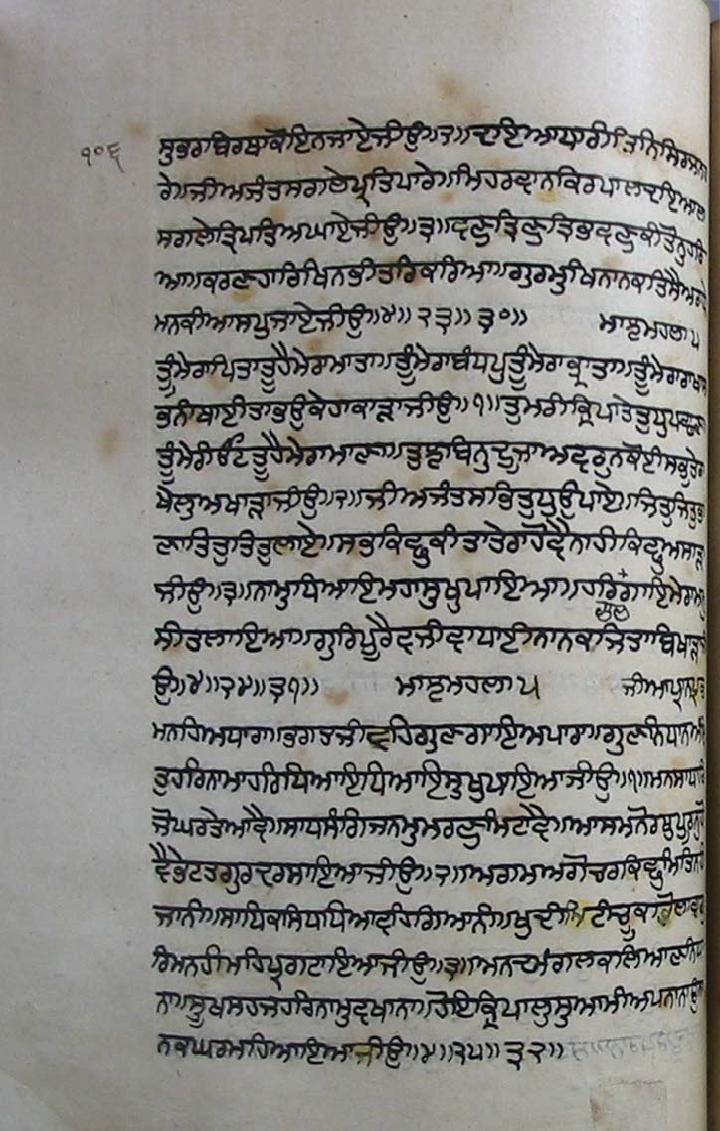 ੧੦੬
ਸੁਭਰਾਬਿਰਥਾਕੋਇਨਜਾਏਜੀਉ॥੨॥ਦਇਆਧਾਰੀਤਿਨਿਸਿਰਜਨਹਾ
ਰੇ॥ਜੀਅਜੰਤਸਗਲੇਪ੍ਰਤਿਪਾਰੇ॥ਮਿਹਰਵਾਨਕਿਰਪਾਲਦਇਆਲਾ
ਸਗਲੇਤ੍ਰਿਪਤਿਅਘਾਏਜੀਉ॥੩॥ਵਣੁਤ੍ਰਿਣੁਤ੍ਰਿਭਵਣੁਕੀਤੋਨੁਹਰਿ
ਆ॥ਕਰਣਹਾਰਿਖਿਨਭੀਤਰਿਕਰਿਆ॥ਗੁਰਮੁਖਿਨਾਨਕਤਿਸੈਅਰਾਧੇ
ਮਨਕੀਆਸਪੁਜਾਏਜੀਉ॥੪॥੨੩॥੩੦॥ ਮਾਝਮਹਲਾ੫
ਤੂੰਮੇਰਾਪਿਤਾਤੂਹੈਮੇਰਾਮਾਤਾ॥ਤੂੰਮੇਰਾਬੰਧਪੁਤੂੰਮੇਰਾਭ੍ਰਾਤਾ॥ਤੂੰਮੇਰਾਰਾਖਾਸ
ਭਨੀਥਾਈਤਾਭਉਕੇਹਾਕਾੜਾਜੀਉ॥੧॥ਤੁਮਰੀਕ੍ਰਿਪਾਤੇਤੁਧੁਪਛਾਣਾ
ਤੂੰਮੇਰੀਓਟਤੂਹੈਮੇਰਾਮਾਣਾ॥ਤੁਝਬਿਨੁਦੂਜਾਅਵਰੁਨਕੋਈਸਭੁਤੇਰਾ
ਖੇਲੁਅਖਾੜਾਜੀਉ॥੨॥ਜੀਅਜੰਤਸਭਿਤੁਧੁਉਪਾਏ॥ਜਿਤੁਜਿਤੁਭਾ
ਣਾਤਿਤੁਤਿਤੁਲਾਏ॥ਸਭਕਿਛੁਕੀਤਾਤੇਰਾਹੋਵੈਨਾਹੀਕਿਛੁਅਸਾੜਾ
ਜੀਉ॥੩॥ਨਾਮੁਧਿਆਇਮਹਾਸੁਖੁਪਾਇਆ॥ਹਰਿਗੁਣਗਾਇਮੇਰਾਮਨੁ
ਸੀਤਲਾਇਆ॥ਗੁਰਿਪੂਰੈਵਜੀਵਾਧਾਈਨਾਨਕਜਿਤਾਬਿਖਾੜਾਜੀ
ਉ॥੪॥੨੪॥੩੧॥ ਮਾਝਮਹਲਾ੫ ਜੀਅਪ੍ਰਾਨਪ੍ਰਭ
ਮਨਹਿਅਧਾਰਾ॥ਭਗਤਜੀਵਹਿਗੁਣਗਾਇਅਪਾਰਾ॥ਗੁਣਨਿਧਾਨਅੰਮ੍ਰਿ
ਤੁਹਰਿਨਾਮਾਹਰਿਧਿਆਇਧਿਆਇਸੁਖੁਪਾਇਆਜੀਉ॥੧॥ਮਨਸਾਧਾਰਿ
ਜੋਘਰਤੇਆਵੈ॥ਸਾਧਸੰਗਿਜਨਮੁਮਰਣੁਮਿਟਾਵੈ॥ਆਸਮਨੋਰਥੁਪੂਰਨੁਹੋ
ਵੈਭੇਟਤਗੁਰਦਰਸਾਇਆਜੀਉ॥੨॥ਅਗਮਅਗੋਚਰਕਿਛੁਮਿਤਿਨਹੀ
ਜਾਨੀ॥ਸਾਧਿਕਸਿਧਧਿਆਵਹਿਗਿਆਨੀ॥ਖੁਦੀਮਿਟੀਚੂਕਾਭੋਲਾਵਾਗੁ
ਰਿਮਨਹੀਮਹਿਪ੍ਰਗਟਾਇਆਜੀਉ॥੩॥ਅਨਦਮੰਗਲਕਲਿਆਣਨਿਧਾ
ਨਾ॥ਸੂਖਸਹਜਹਰਿਨਾਮੁਵਖਾਨਾ॥ਹੋਇਕ੍ਰਿਪਾਲੁਸੁਆਮੀਅਪਨਾਨਾਉਨਾ
ਨਕਘਰਮਹਿਆਇਆਜੀਉ॥੪॥੨੫॥੩੨॥